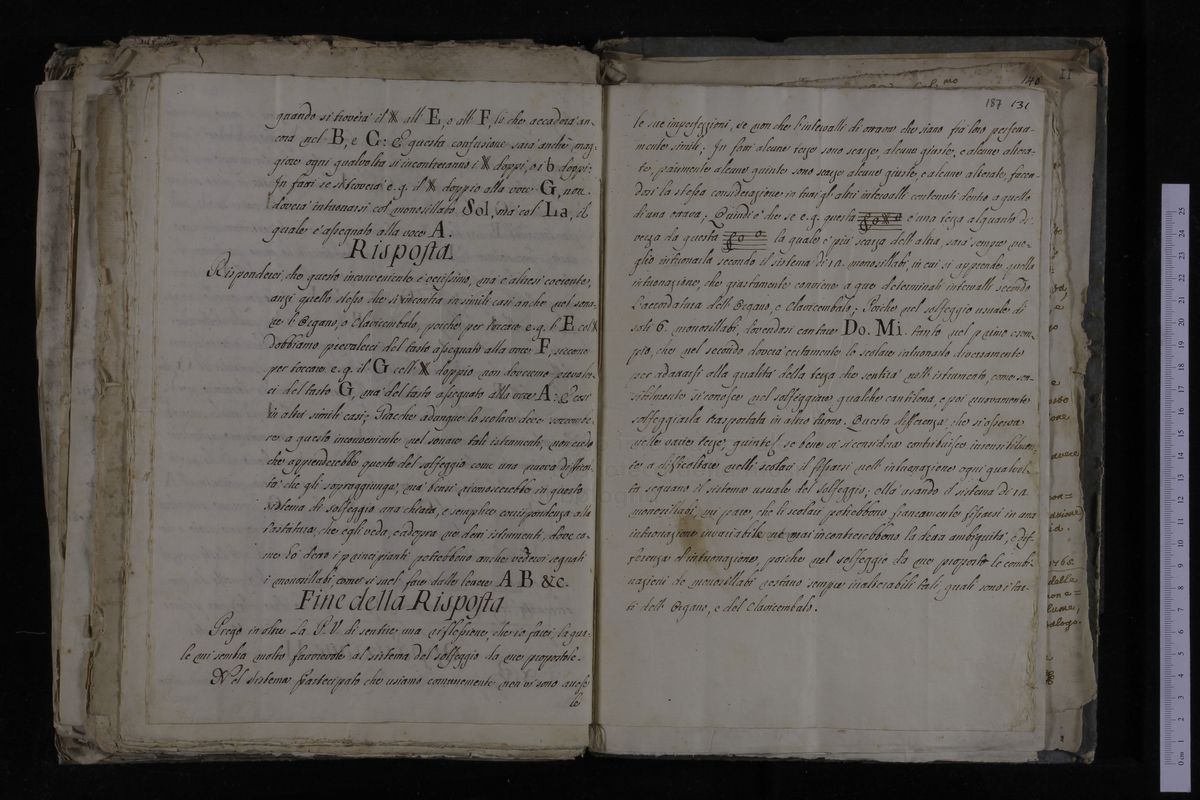 quando si troverà il ※ all E, o all F, lo che accaderà an-
cora nel B, e C: E questa confusione sarà anche mag-
giore ogni qualvolta si incontreranno i ※ doppi, o i b doppi:
In fatti se si troverà e. g. il ※ doppio alla voce G, non
doverà intuonarsi col monosillabo Sol, mà col La, il
quale è assegnato alla voce A.
Risposta
Risponderei, che questo inconveniente è verissimo, ma è altresì coerente,
anzi quello stesso che s'incontra in simili casi anche nel sona-
re l'Organo, o Clavicembalo, poiche per toccare e. g. l'E col ※
dobbiamo prevalerci del tasto assegnato alla voce F, siccome
per toccare e. g. il G coll ※ doppio non dovremo prevaler-
ci del tasto G, mà del tasto assegnato alla voce A: E così
in altri simili casi; Giacche adunque lo scolare deve soccombe-
re a questo inconveniente nel sonare tali istrumenti, non credo
che apprenderebbe questa del solfeggio come una nuova difficol-
tà che gli sopraggiunga, mà bensì riconoscerebbe in questo
sistema di solfeggio una chiara, e semplice corrispondenza alla
tastatura, che egli veda, e adopra ne' detti istrumenti, dove co-
me io dero i principianti potrebbero anche vedersi segnati
i monosillabi, come si suol fare dalle lettere A B &c.
Fine della Risposta
Prego inoltre La P. V. di sentire una riflessione, che io facei, la qua-
le mi sembra molto favorevole al sistema del solfeggio da me propostole.
Nel sistema partecipato che usiamo comunemente non vi sono anche
le
146
11
187 131
le sue imperfezioni, se non che l'intervalli di ottava che siano frà loro perfetta-
mente simili; In fatti alcune terze sono scarse, alcune giuste, e alcune altera-
te, parimente alcune quinte sono scarse alcune giuste, e alcune alterate, facen-
dosi la stessa considerazione in tutti gl'altri intervalli contenuti dentro a quello
di una ottava; Quindi è che se e. g. questa è una terza alquanto di-
versa da questa la quale è più scarsa dell'altra, sarà sempre me-
glio intuonarla secondo il sistema di 12. monosillabi, in cui si apprende quella
intuonazione, che giustamente conviene a que' determinati intervalli secondo
l'accordatura dell'Organo, e Clavicembalo; Poiche nel solfeggio usuale di
soli 6. monosillabi, dovendosi cantare Do. Mi. tanto nel primo esem-
pio, che nel secondo doverà certamente lo scolare intuonarlo diversamente
per adattarsi alla qualità della terza che sentirà nell'istrumento, come sen-
sibilmente si conosce nel solfeggiare qualche cantilena, e poi nuovamente
solfeggiarla trasportata in altro tuono. Questa differenza, che si osserva
nelle varie terze, quinte &. se bene si considera contribuisce insensibilmen-
te a difficoltare nelli scolari il fissarsi nell'intuonazione ogni qual vol-
ta seguano il sistema usuale del solfeggio; Mà usando il sistema di 12.
monosillabi mi pare, che li scolari potrebbono francamente fissarsi in una
intuonazione invariabile nè mai incontrerebbono la detta ambiguità, e dif-
ferenza d'intuonazione, poiche nel solfeggio da me proposto le combi-
nazioni de' monosillabi restano sempre inalterabili tali, quali sono i tas-
ti dell'Organo, e del Clavicembalo.